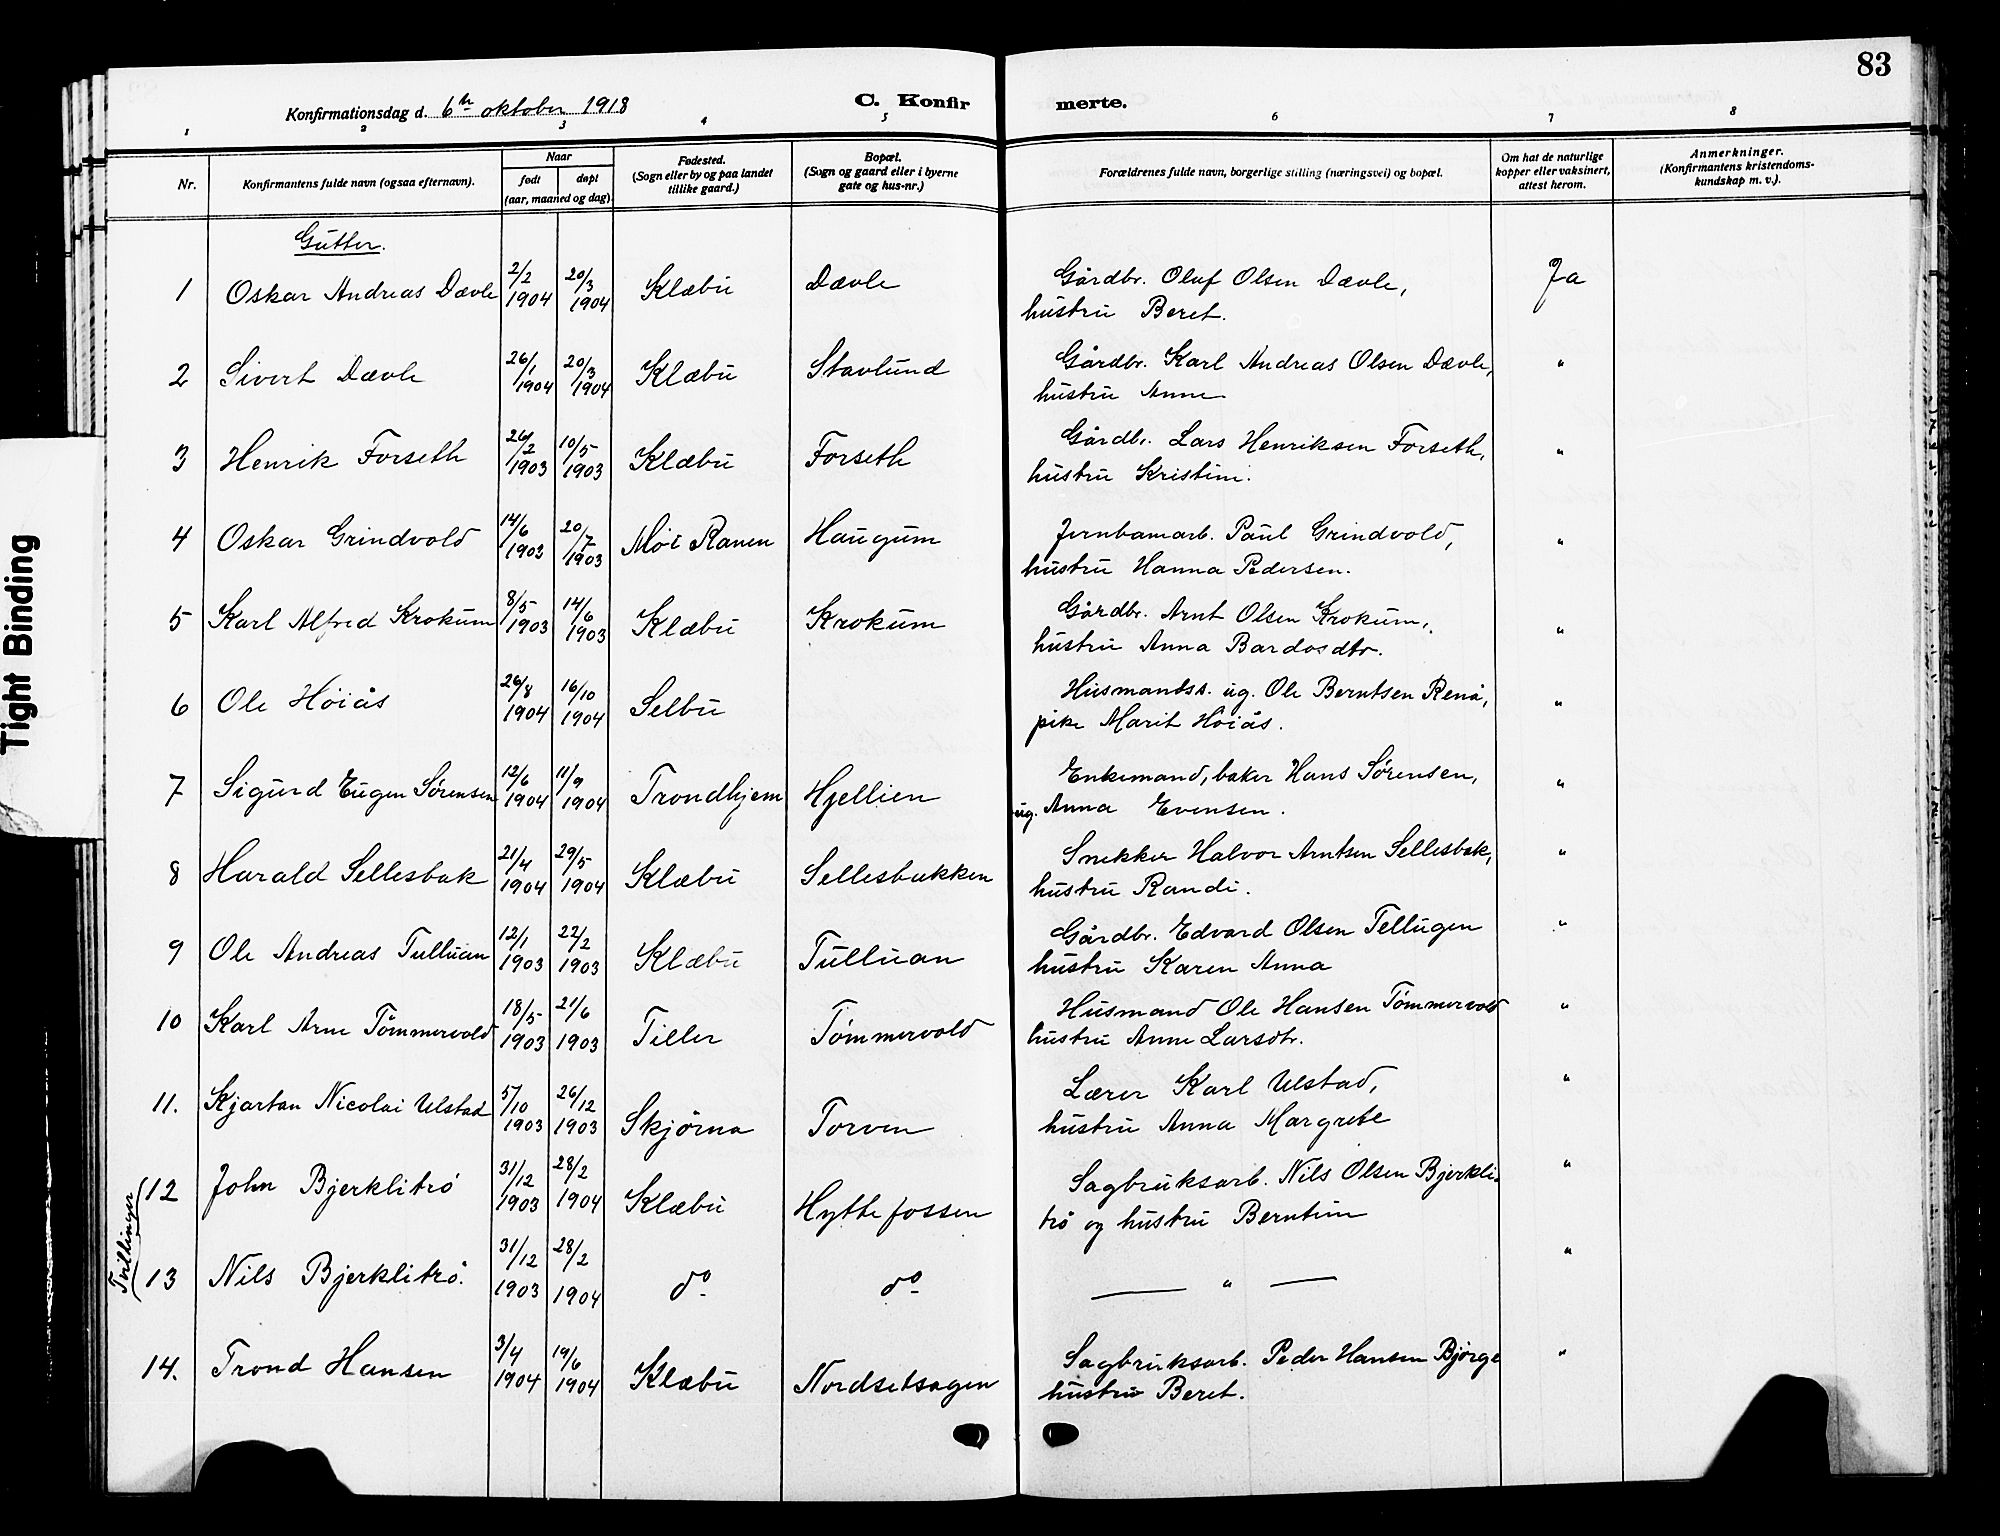 83
Konfirmationsdag d. 6te oktober 1918
C. Konfirmerte.
1 2 3 4 5 6 7 8
Nr.
Konfirmantens fulde navn (ogsaa efternavn).
Naar
født
døpt
(aar, maaned og dag).
Fødested.
(Sogn eller by og paa landet
tillike gaard.)
Bopæl.
(Sogn og gaard eller i byerne
gate og hus-nr.)
Forældrenes fulde navn, borgerlige stilling (næringsvei) og bopæl.
Om hat de naturlige
kopper eller vaksinert,
attest herom.
Anmerkninger.
(Konfirmantens kristendoms-
kundskap m. v.).
Gutter.
1 Oskar Andreas Dævle 2/2 1904 20/3 1904 Klæbu Dævle Gårdbr. Oluf Olsen Dævle, Ja
hustru Beret.
2 Sivert Dævle 26/1 1904 20/3 1904 Klæbu Stavlund Gårdbr. Karl Andreas Olsen Dævle, "
hustru Anne
3 Henrik Forseth 26/2 1903 10/5 1903 Klæbu Forseth Gårdbr. Lars Henriksen Forseth, "
hustru Kristine.
4 Oskar Grindvold 14/6 1903 20/7 1903 Moi Ranen Haugum Jernbanearb. Paul Grindvold, "
hustru Hanna Pedersen.
5 Karl Alfred Krokum 8/5 1903 14/6 1903 Klæbu Krokum Gårdbr. Arnt Olsen Krokum, "
hustru Anna Bardosdtr.
6 Ole Høiås 26/8 1904 16/10 1904 Selbu Husmandss. ug. Ole Berntsen Renå, "
pike Marit Høiås.
7 Sigurd Eugen Sørensen 12/6 1904 11/9 1904 Trondhjem Hjellien Enkemand, baker Hans Sørensen, "
ug. Anna Evensen.
8 Harald Sellesbak 21/4 1904 29/5 1904 Klæbu Sellesbakken Snekker Halvor Arntsen Sellesbak, "
hustru Randi.
9 Ole Andreas Tulluan 12/1 1903 22/2 1903 Klæbu Tulluan Gårdbr. Edvard Olsen Tellugen "
hustru Karen Anna
10 Karl Arne Tømmervold 18/5 1903 21/6 1903 Tiller Tømmervold Husmand Ole Hansen Tømmervold "
hustru Anne Larsdtr.
11. Kjartan Nicolai Ulstad 5/10 1903 26/12 1903 Skjørna Torven Lærer Karl Ulstad, "
hustru Anna Margrete
Tvillinger
12 John Bjerklitrø 31/12 1903 28/2 1904 Klæbu Hyttefossen Sagbruksarb. Nils Olsen Bjerkli- "
trø og hustru Berntine
13 Nils Bjerklitrø. 31/12 1903 28/2 1904 do do — " — "
14. Trond Hansen 3/4 1904 19/6 1904 Klæbu Nordsetsagen Sagbruksarb. Peder Hansen Bjørge "
hustru Beret.
Tight Binding